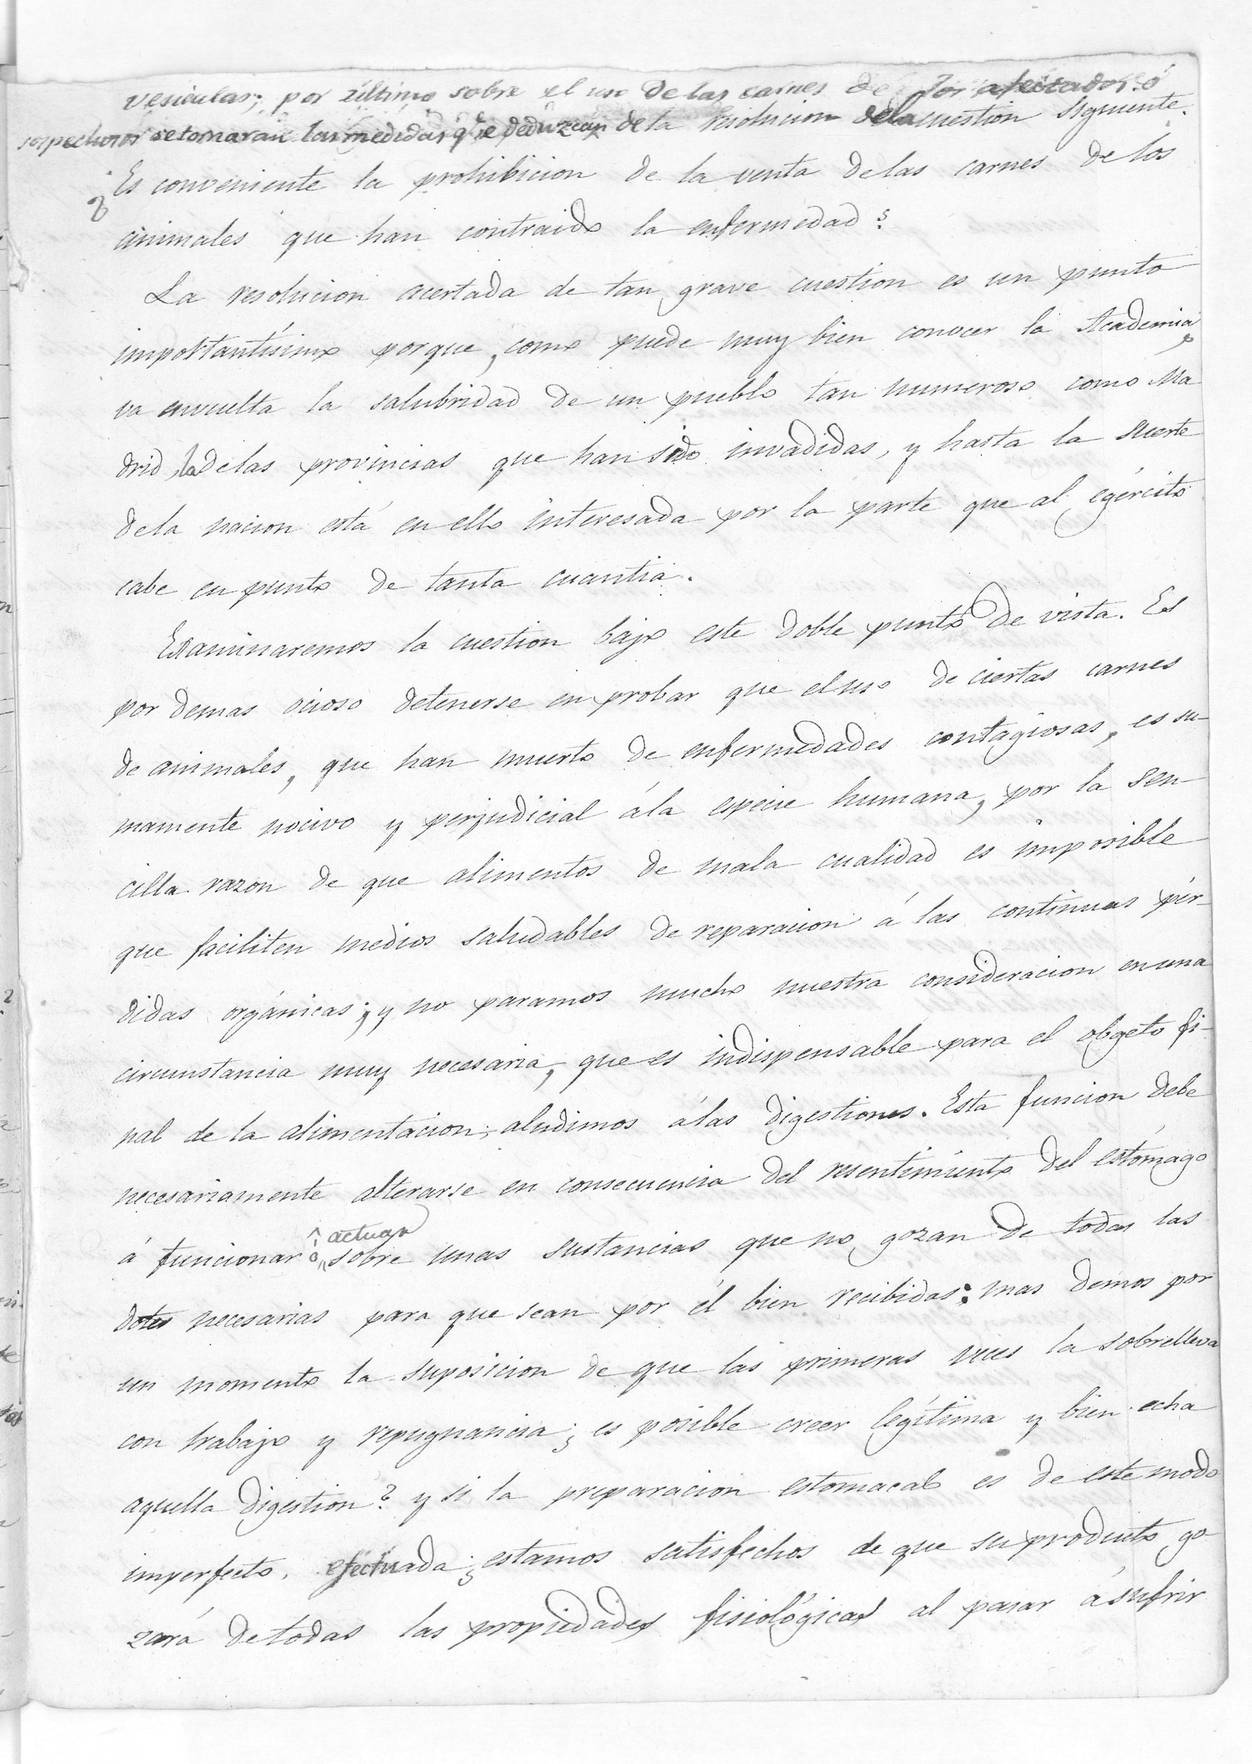 vesicular; por último sobre el uso de las carnes de los afectados ó
sospechosos se tomarán las medidas q.e se deduzcan de la resolucion dela cuestion siguiente.
¿Es conveniente la prohibicion de la venta delas carnes de los
animales que han contraido la enfermedad?
La resolucion acertada de tan grave cuestion es un punto
importantísimo porque, como puede muy bien conocer la Academia,
va envuelta la salubridad de un pueblo tan numeroso como Ma
drid, la delas provincias que han sido invadidas, y hasta la suerte
dela nacion está en ello interesada por la parte que al egército
cabe en punto de tanta cuantia.
Examinaremos la cuestion bajo este doble punto de vista. Es
por demas ocioso detenerse en probar que el uso de ciertas carnes
de animales, que han muerto de enfermedades contagiosas, es su-
mamente nocivo y perjudicial ála especie humana, por la sen-
cilla razon de que alimentos de mala cualidad es imposible
que faciliten medios saludables de reparacion á las continuas pér-
didas orgánicas; y no paramos mucho nuestra consideracion en una
circunstancia muy necesaria, que es indispensable para el obgeto fi-
nal de la alimentacion; aludimos álas digestiones. Esta funcion debe
necesariamente alterarse en consecuencia del resentimiento del estómago
actuar
á funcionar ó sobre unas sustancias que no gozan de todas las
dotes necesarias para que sean por él bien recibidas: mas demos por
un momento la suposicion de que las primeras veces la sobrelleva
con trabajo y repugnancia; ¿es posible creer legítima y bien echa
aquella digestion? y si la preparacion estomacal es de este modo
imperfecto efectuada ¿estamos satisfechos de que su producto go-
zará detodas las propiedades fisiológicas al pasar ásufrir